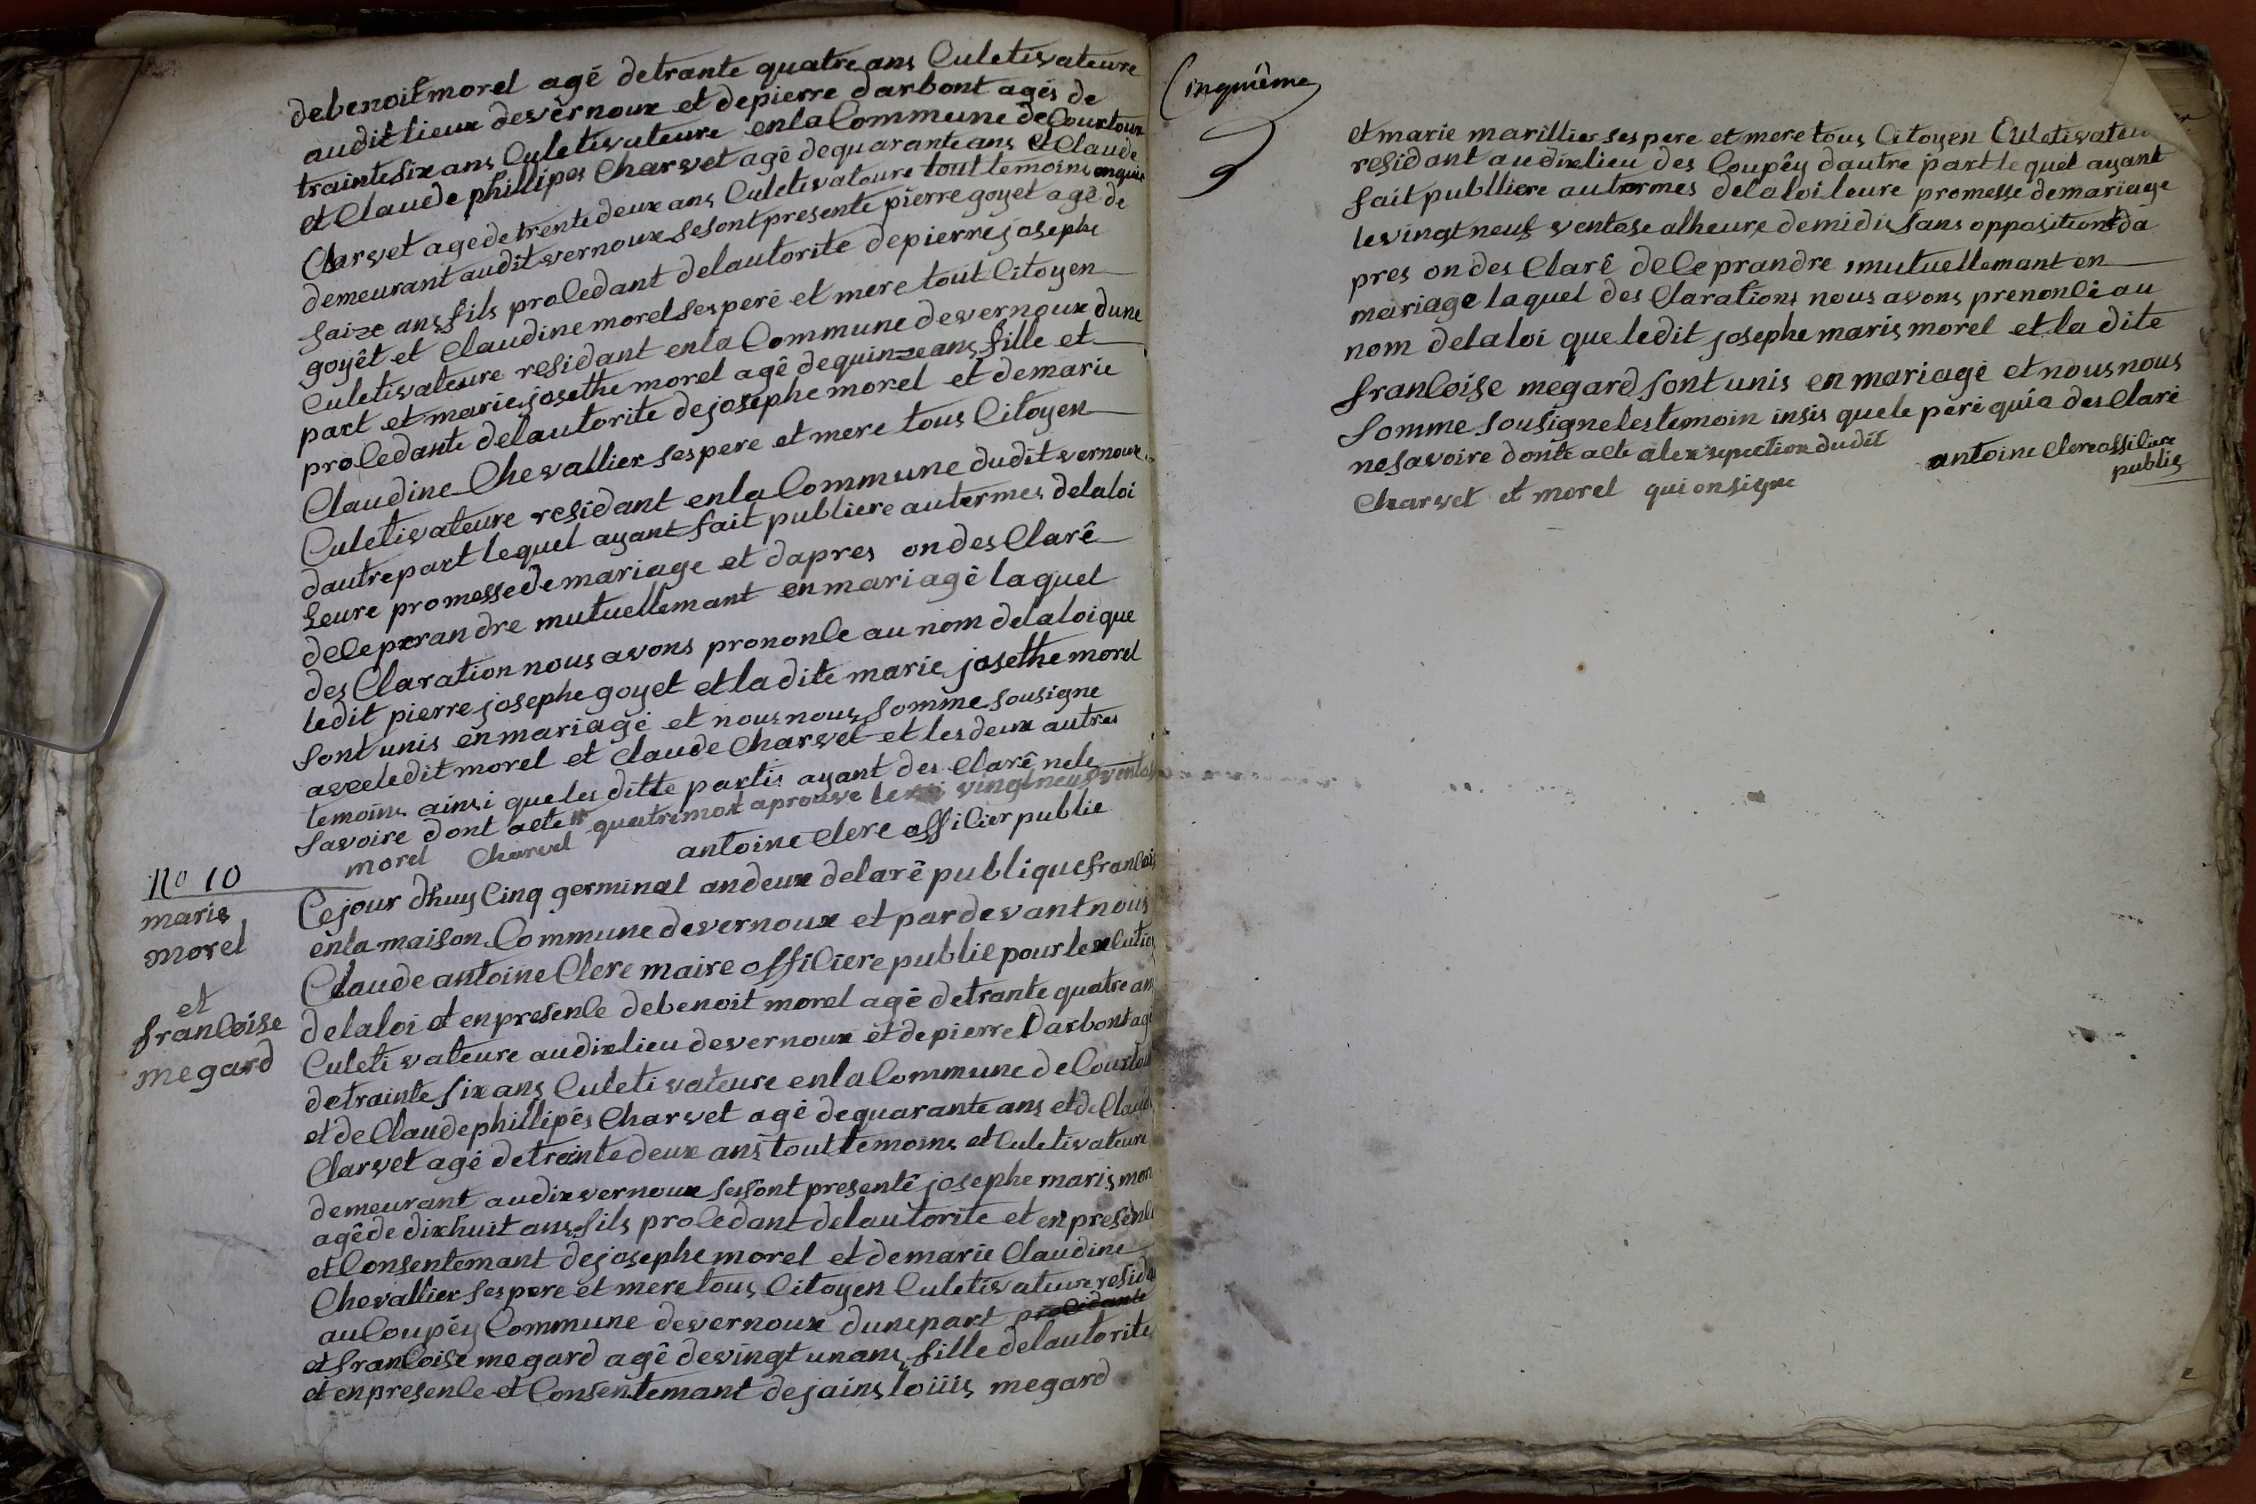 debenoit morel agé detrante quatre ans Culetivateure
audit lieux devernoux et depierre darbont agés de
trainte six ans Culetivateure enla Commune de Courtoux
et Claude phillipes Charvet agé dequarante ans et Claude
Clarvet agé detrente deux ans Culetivateure tout temoins
demeurant audit vernoux sesont presente pierre goyet agé de
saize ans fils proledant delautorite depierre josephe
goyêt et Claudine morel ses peré et mere tout Citoyen
Culetivateure residant enla Commune devernoux dune
part et marie josethe morel agê dequinze ans fille et
proledante delautorite dejosephe morel et demarie
Claudine Chevallier ses pere et mere tous Citoyen
Culetivateure residant enla Commune dudit vernoux
dautre part lequel ayant fait publiere autermes delaloi
Leure promesse demariage et dapres on des Clarê
deleprrandre mutuellemant en mariagê laquel
des Claration nous avons prononle au nom delaloi que
ledit pierre josephe goyet et ladite marie josethe morel
sont unis en mariagé et nous nous somme sousigne
avec ledit morel et Claude Charvet et les deux autres
temoins ainsi queles ditte partis ayant des Clarê nele
savoire dont acte quatre mot aprouve le vingt neuf ventos
morel Charvet antoine Clere offilier publie
No 10
maris
morel
et
franloise
megard
Ce jour dhuy Cinq germinal andeux delaré publique franlois
enla maison Commune devernoux et pardevant nous
Claude antoine Clere maire offiliere publie pour lexelution
delaloi et en presenle debenoit morel agé detrante quatre ans
Culeti vateure audix lieu devernoux et depierre Darbont agé
detrainte six ans Culeti vateure enla Commune de Courtoux
et de Claude phillipés Charvet agé dequarante ans et de Claude
Clarvet agé detrainte deux ans tout temoins et Culetivateure
demeurant audix vernoux se sont presentê josephe maris mor
agê de dixhuit ans fils proledant delautorite et en presenle
et Consentemant dejosephe morel et demarie Claudine
Chevallier ses pere et mere tous Citoyen Culetivateure resida
au Coupêy Commune devernoux dunepart proledante
et franloise megard agê devingt un ans fille delautorite
et en presenle et Consentemant dejains loüis megard
Cinquiême
et marie marillier ses pere et mere tous Citoyen Culetivateu
residant audixlieu des Coupêy dautre part le quel ayant
fait publliere autermes delaloi leure promesse demariage
levingt neuf ventose alheure demidis sans opposition da
pres on des Clarê dele prandre mutuellemant en
mariage laquel des Clarations nous avons prenonlé au
nom delaloi que ledit josephe maris morel et la dite
franloise megard sont unis en mariagé et nous nous
somme sousigne les temoin insis quele peri quia des Claré
nesavoire dont acte alexsepection dudit
Charvet et morel qui onsigne
antoine Clere offiliere
publie